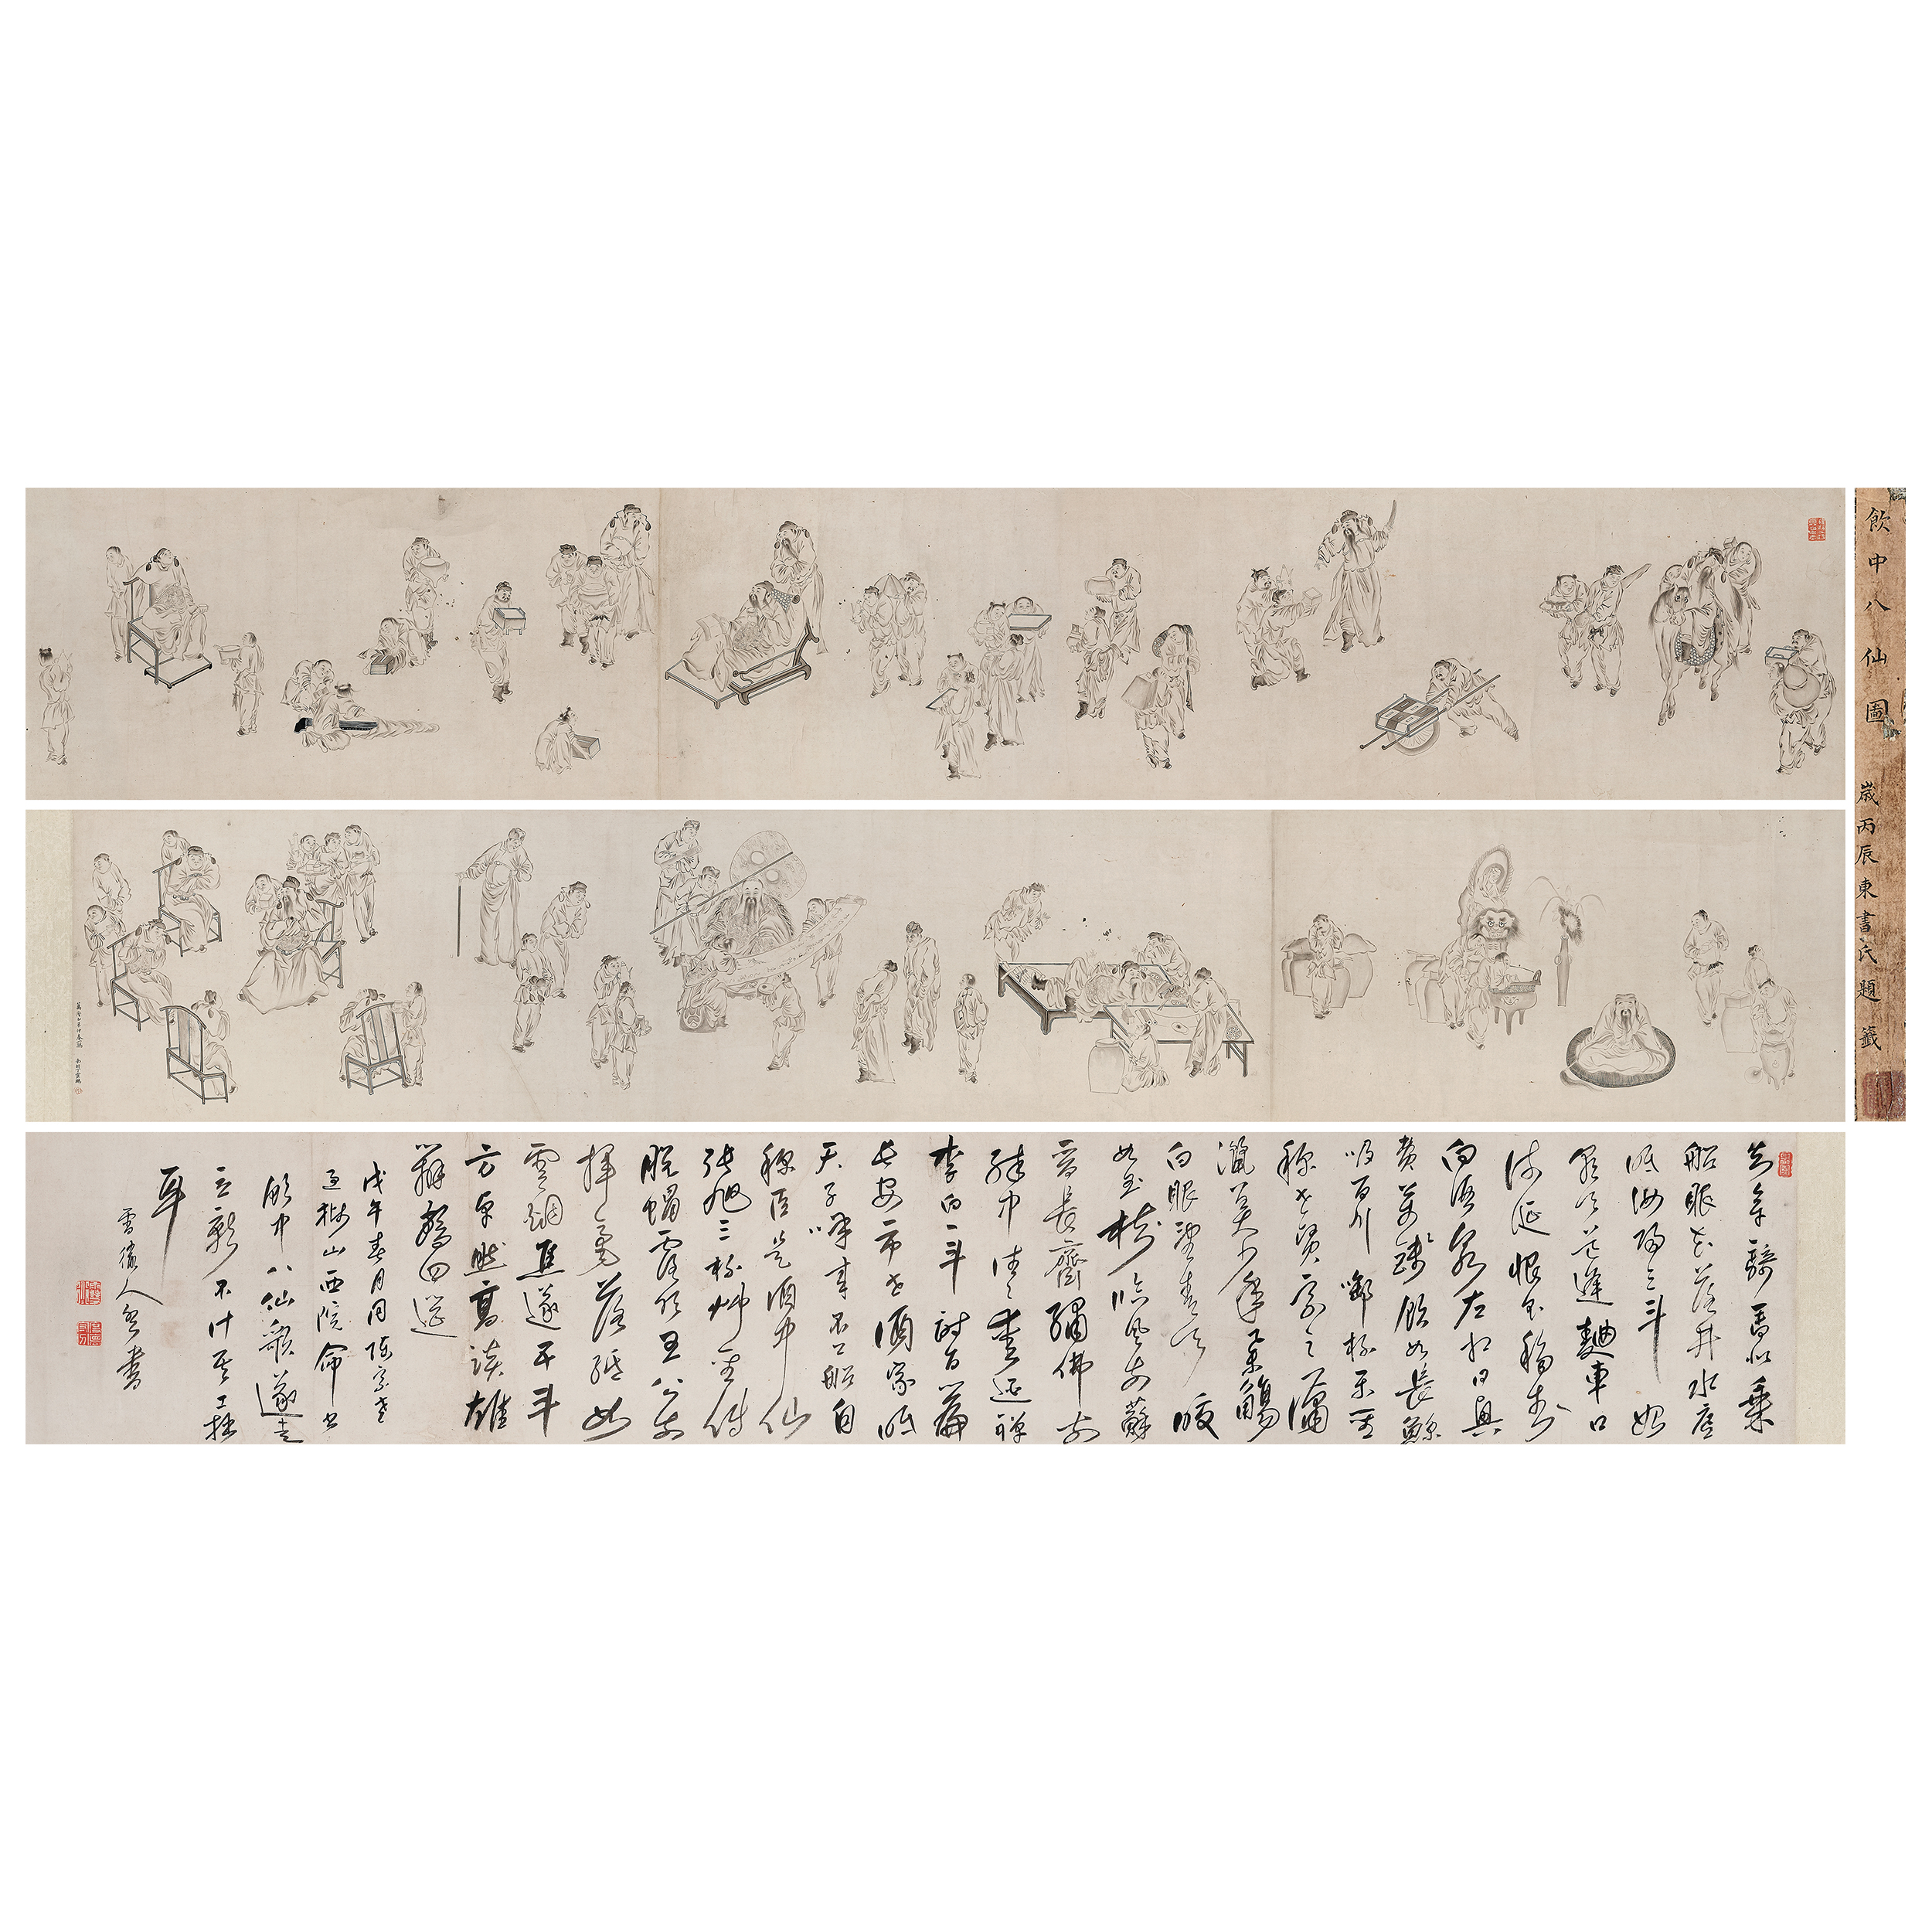 飲中八仙圖
歲丙辰東書氏題籤
知章騎馬似乘
船眼花落井水底
眠汝陽三斗始
朝天道逢麴車口
流涎恨不移封
向酒泉左相日興
費萬錢飲如長鯨
吸百川銜杯樂聖
稱世賢宗之瀟
灑美少年舉觴
白眼望青天皎
如玉樹臨風前蘇
晉長齋繡佛前
醉中往々愛逃禪
李白一斗詩百篇
長安市上酒家眠
天子呼來不上船自
稱臣是酒中仙
張旭三杯艸聖傳
脫帽露頂王公前
揮毫落紙如
雲烟焦遂五斗
方卓然高談雄
辯驚四筵
戊午春月同陳
山西院命書
飲中八仙歌遂走
立就不計其工拙
耳
雪人書